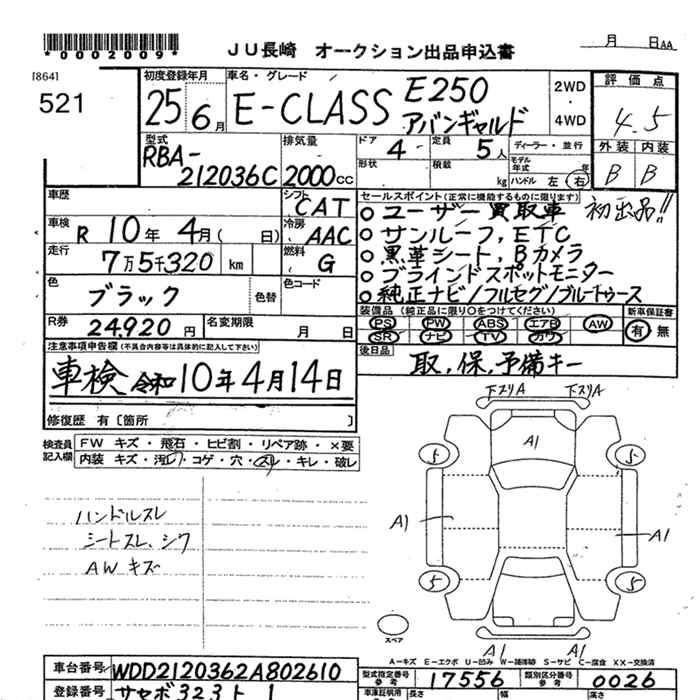 *0002009*
JU長崎 オークション出品申込書
月 日AA
[864]
521
初度登録年月
25 6月
車名・グレード
E-CLASS E250
アバンギャルド
2WD
・
4WD
評価点
4.5
外装 内装
B B
型式
RBA-
212036C
排気量
2000cc
ドア
4
定員
5人
形状
積載
kg
ディーラー・並行
モデル年式 年
ハンドル 左 右
車歴
車検
R 10年 4月( 日)
走行
7万5千320 km
色
ブラック
色替
色コード
シフト
CAT
冷房
AAC
燃料
G
R券
24,920円
名変期限
月 日
セールスポイント(正常に機能するものに限ります)
ユーザー買取車 初出品!!
サンルーフ, ETC
黒革シート, Bカメラ
ブラインドスポットモニター
純正ナビ/フルセグ/ブルートゥース
装備品(純正品に限り○をつけてください)
PS PW ABS エアB AW
SR ナビ TV カワ
新車保証書
有 無
後日品
取, 保, 予備キー
注意事項申告欄(不具合内容等は具体的に記入して下さい)
車検 令和10年4月14日
修復歴 有〔箇所 〕
検査員記入欄
FW キズ・飛石・ヒビ割・リペア跡・×要
内装 キズ・汚れ・コゲ・穴・スレ・キレ・破レ
ハンドルスレ
シートスレ、シワ
AWキズ
下スリA 下スリA
A1
5 5
A1 A1
5 5
スペア
A1 A1
A-キズ E-エクボ U-凹み W-補修跡 S-サビ C-腐食 XX-交換済
車台番号
WDD2120362A802610
登録番号
型式指定番号
参考
17556
類別区分番号
参考
0026
長さ 幅 高さ